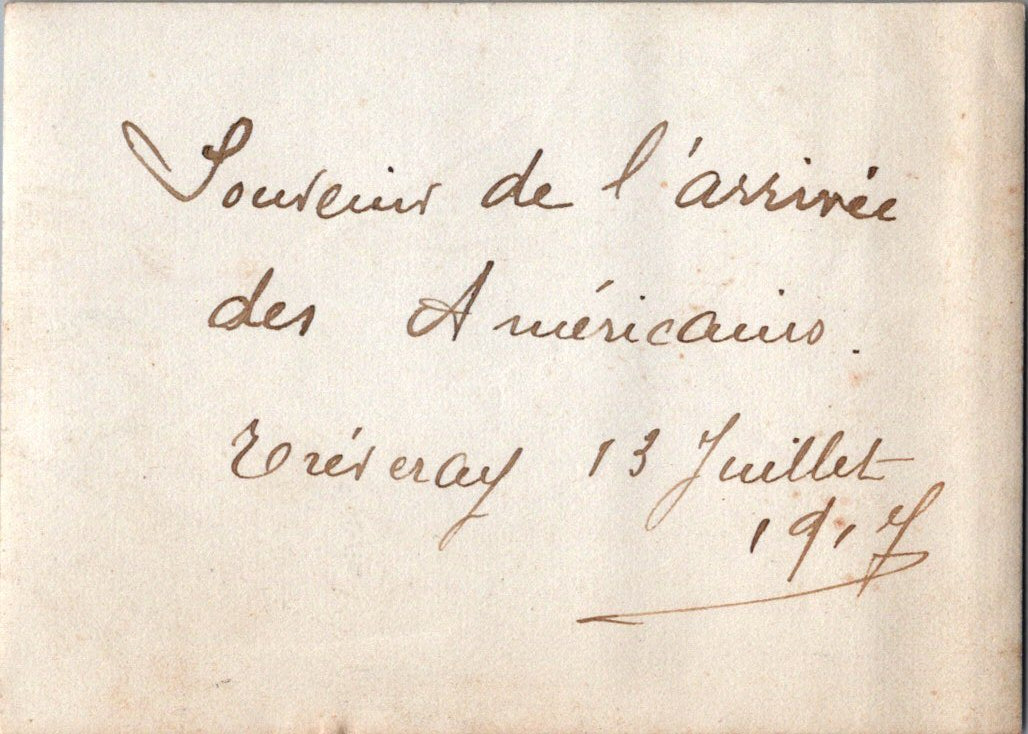 Souvenir de l'arrivée
des Américains.
Tréveray 13 Juillet
1917